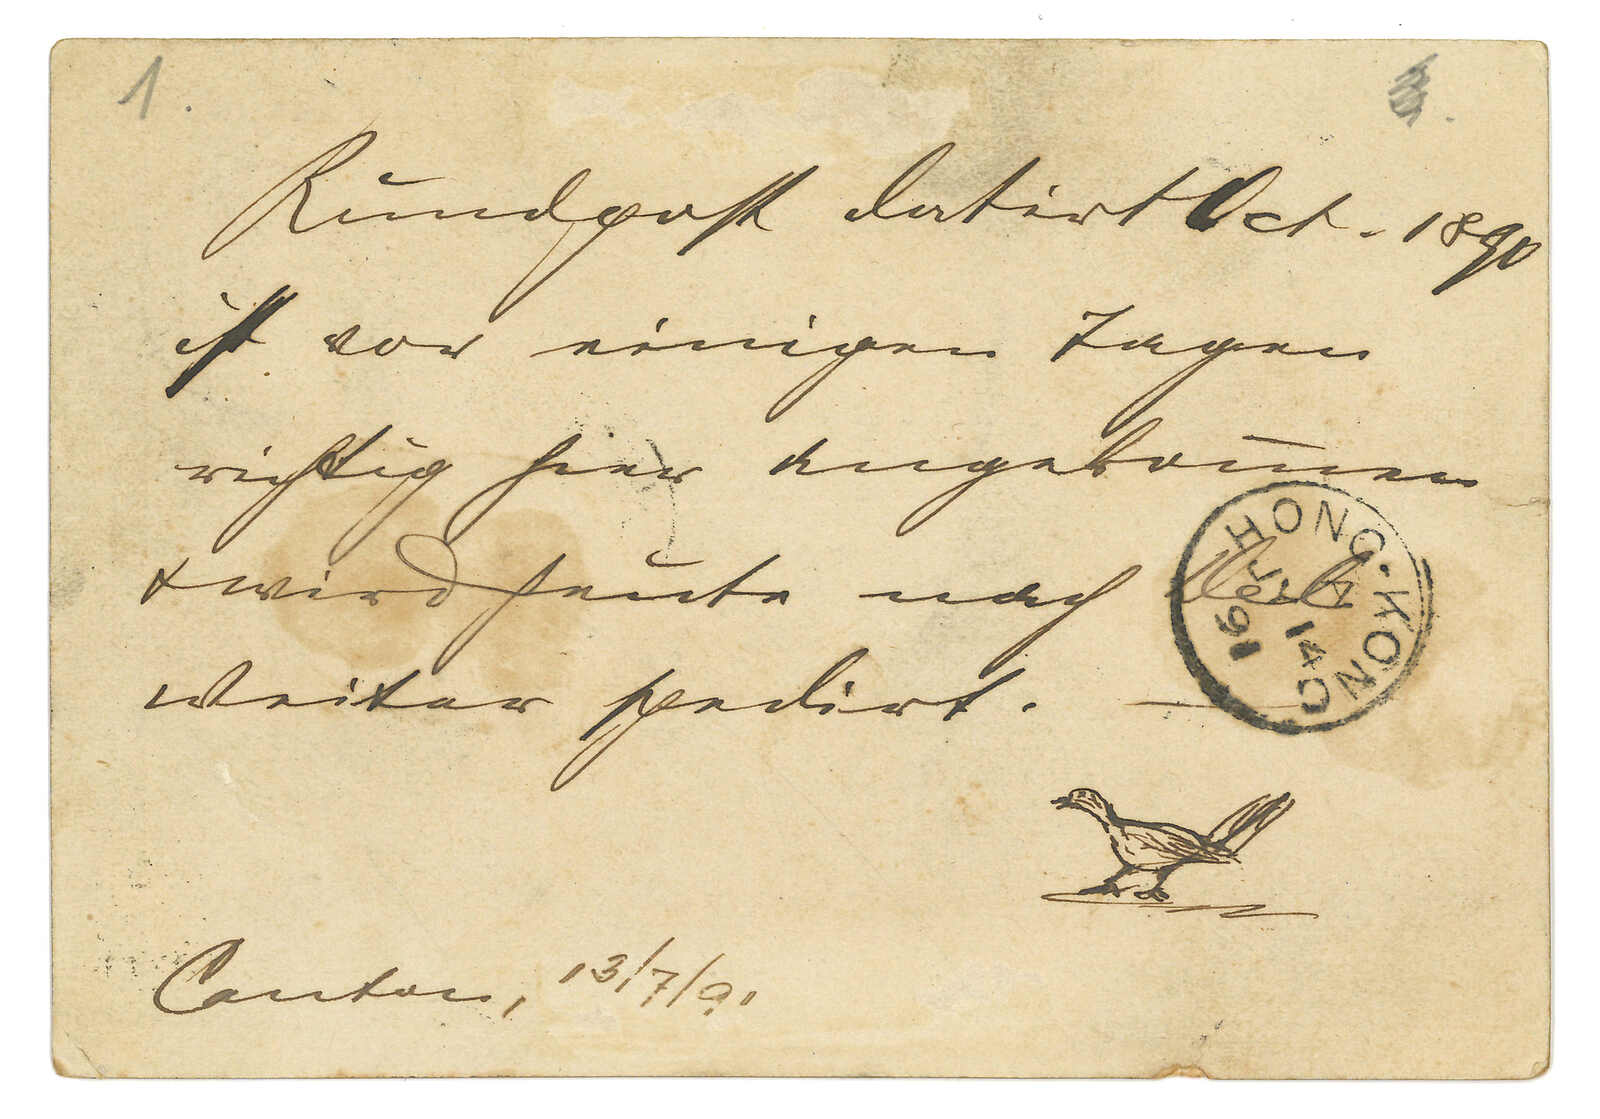 1.
Rundpost datirt Oct. 1890
ist vor einigen Tagen
richtig hier angekom̄en
& wird heute nach
weiter spedirt.
HONG-KONG
JY
14
91
Canton, 13/7/91